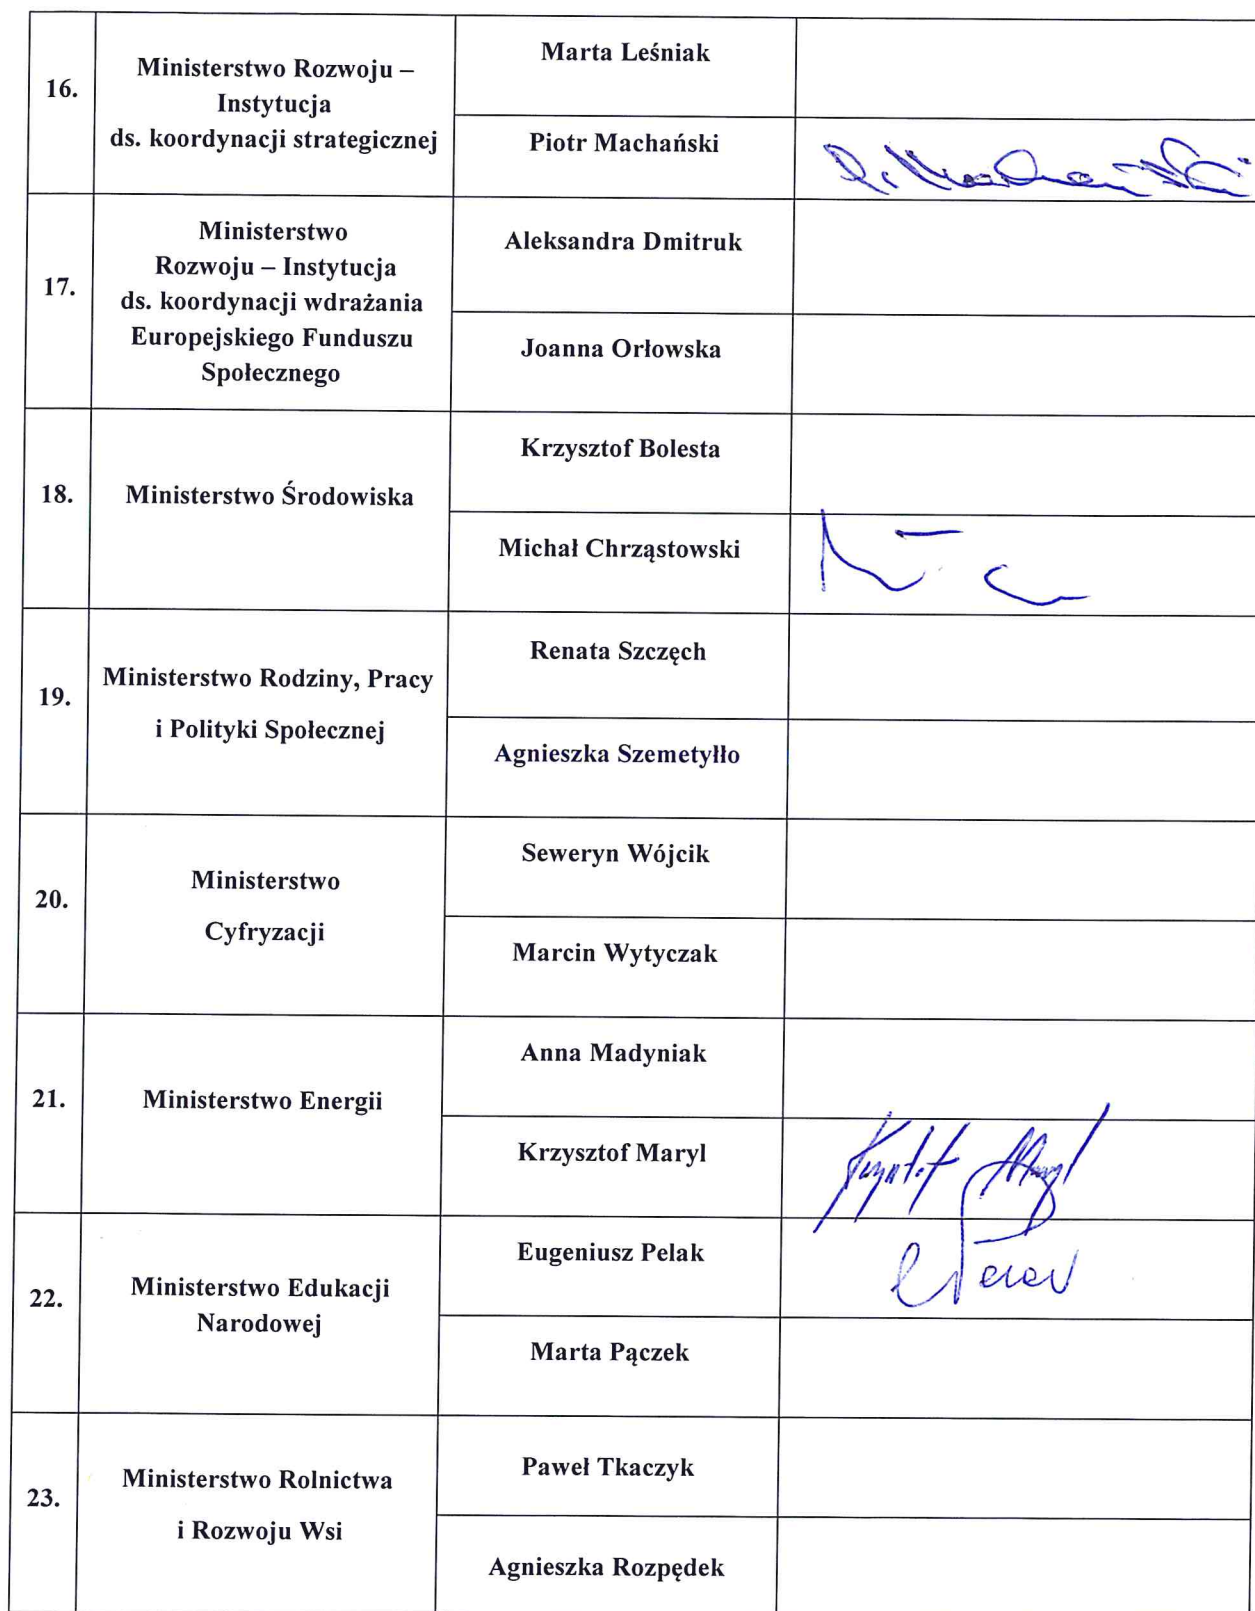 16.
Ministerstwo Rozwoju –
Instytucja
ds. koordynacji strategicznej
Marta Leśniak
Piotr Machański
P. Machański
17.
Ministerstwo
Rozwoju – Instytucja
ds. koordynacji wdrażania
Europejskiego Funduszu
Społecznego
Aleksandra Dmitruk
Joanna Orłowska
18.
Ministerstwo Środowiska
Krzysztof Bolesta
Michał Chrząstowski
19.
Ministerstwo Rodziny, Pracy
i Polityki Społecznej
Renata Szczęch
Agnieszka Szemetyłło
20.
Ministerstwo
Cyfryzacji
Seweryn Wójcik
Marcin Wytyczak
21.
Ministerstwo Energii
Anna Madyniak
Krzysztof Maryl
Krzysztof Maryl
22.
Ministerstwo Edukacji
Narodowej
Eugeniusz Pelak
Marta Pączek
23.
Ministerstwo Rolnictwa
i Rozwoju Wsi
Paweł Tkaczyk
Agnieszka Rozpędek